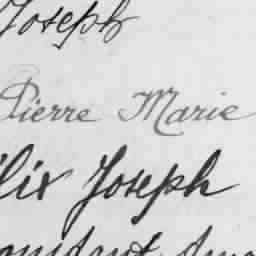 Joseph
Pierre Marie
lix Joseph